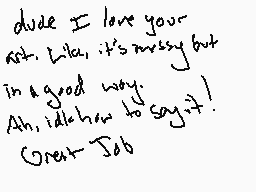 dude I love your
art. Like, it's messy but
in a good way.
Ah, idk how to say it!
Great Job